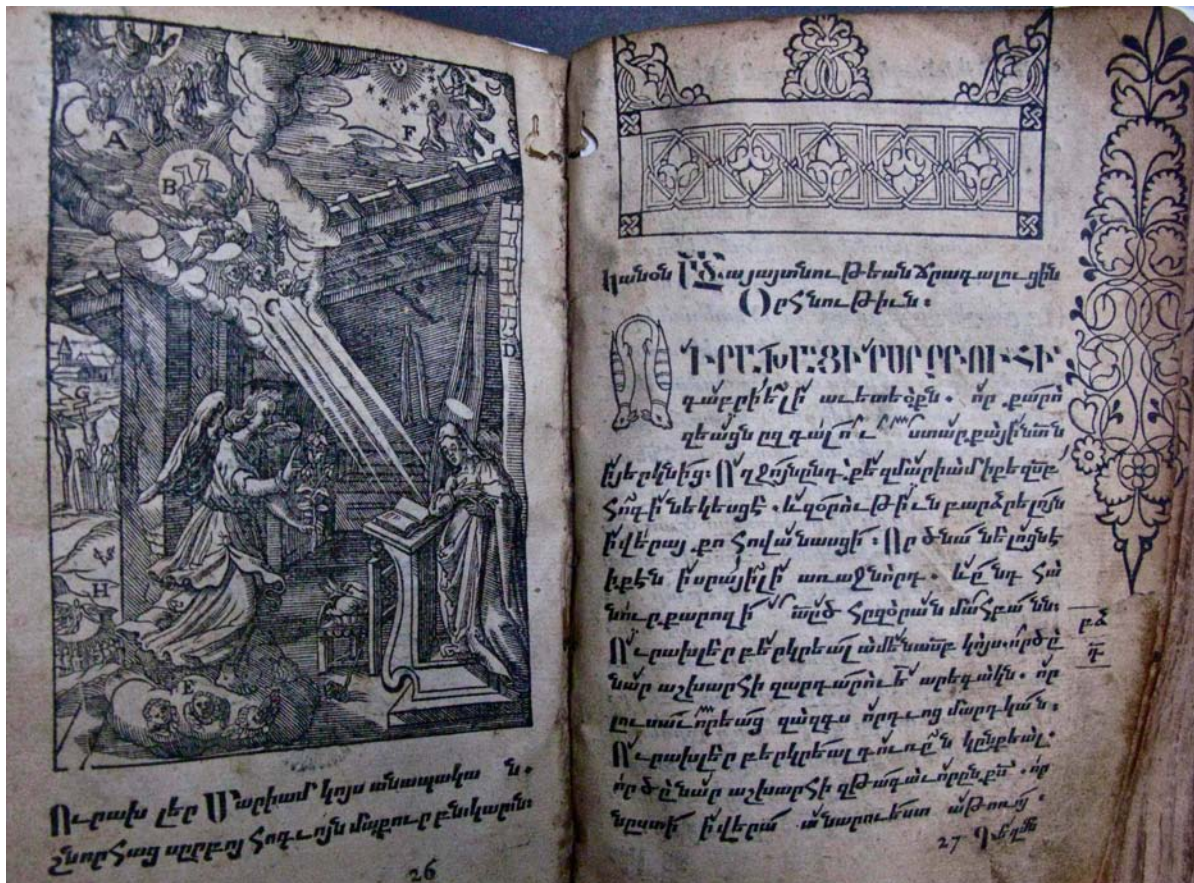 A
B
F
D
G
H
E
Ուրախ լեր Մարիամ կոյս անապական.
շնորհաց սըրբոյ հոգւոյն մաքուր բնակարան։
26
Կանօն այայտնութեան Ճրագալուցին
Օրհնութիւն։
ՈՒՐԱԽԱՑԻՐ ՍՐԲՈՒՀԻ
գաբրիէլի աւետեօքն. որ քարո
զեացն ըզգալուստ արքային
ի յերկնից։ Ողջոյն ընդ քեզ մարիամ ի քեզ սբ
հոգի նեկեսցէ. և զօրութիւն բարձրելոյն
ի վերայ քո հովանասցի։ Որ ծնանելոցն է
ի քէն իսրայէլի առաջնորդ. և ընդ հա
նուր քարոզի ած հըզօր անմահ բան։
Ուրախ լեր բերկրեալ ամենասբ կոյս. որ ծը
նար աշխարհի զարդարութե արեգակն. որ
լուսաւորեաց զազգս որդւոց մարդկան։
Ուրախ լեր բերկրեալ կընքեալ.
որ ծընար աշխարհի զթագաւորըն քս. որ
նըստի ի վերայ անարուեստ աթոռոյ.
27